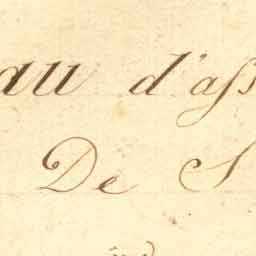 au d'ass
De S